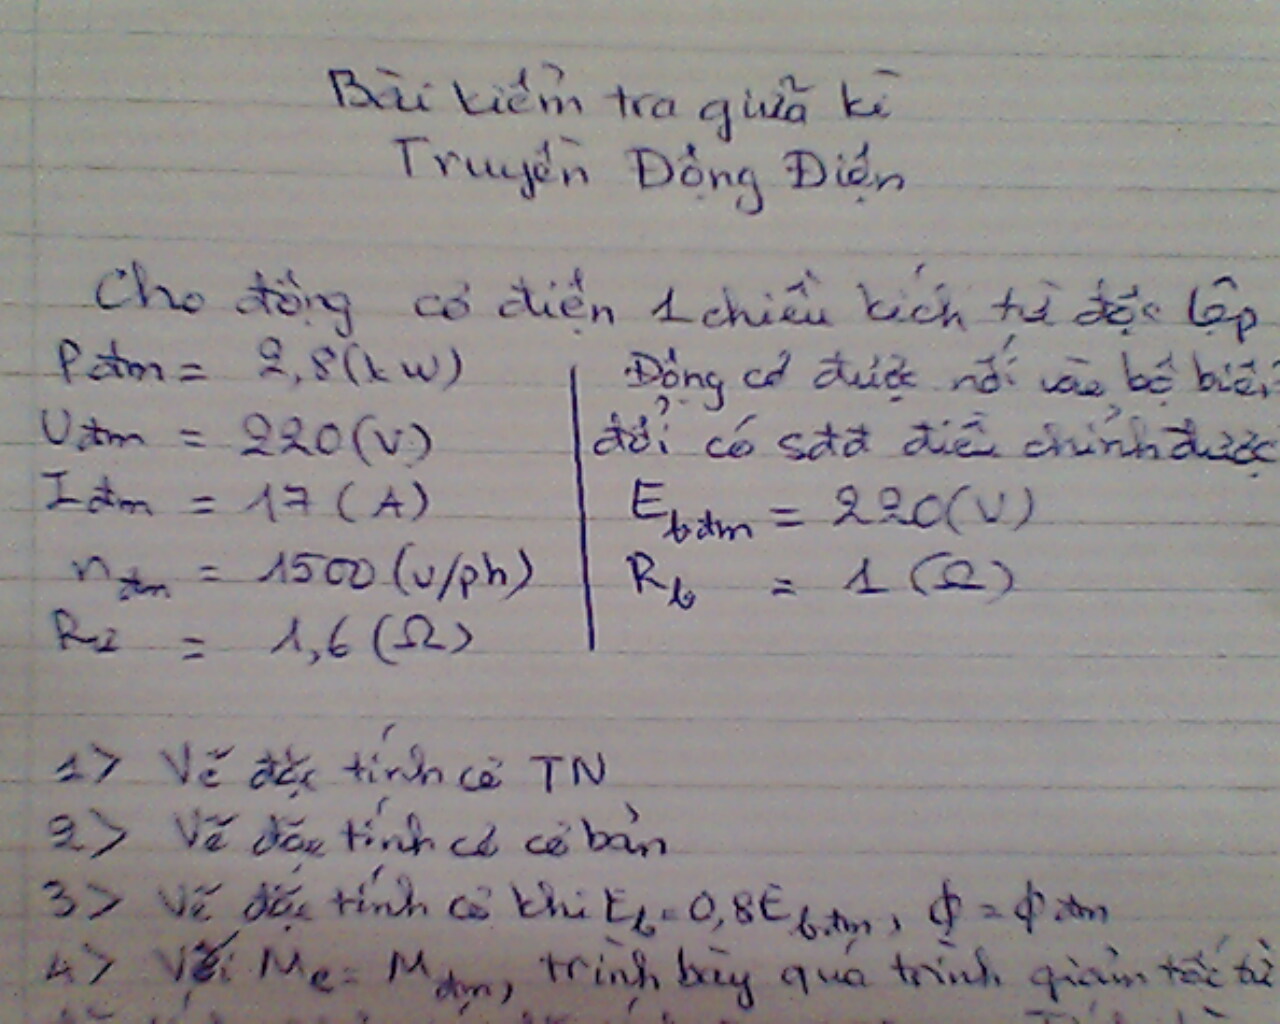 Bài kiểm tra giữa kì
Truyền Động Điện
Cho động cơ điện 1 chiều kích từ độc lập
Pđm = 2,8(kW)
Uđm = 220(V)
Iđm = 17(A)
nđm = 1500(v/ph)
Rư = 1,6(Ω)
Động cơ được nối vào bộ biến
đổi có sđđ điều chỉnh được
Ebđm = 220(V)
Rb = 1(Ω)
1> Vẽ đặc tính cơ TN
2> Vẽ đặc tính cơ cơ bản
3> Vẽ đặc tính cơ khi Eb=0,8Ebđm, ϕ=ϕđm
4> Với Mc=Mđm, trình bày quá trình giảm tốc từ